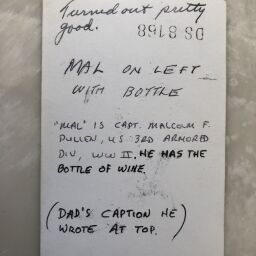 Turned out pretty
good.
DS 8168
MAL ON LEFT
WITH BOTTLE
"MAL" IS CAPT. MALCOLM F.
PULLEN, US 3RD ARMORED
DIV, WW II. HE HAS THE
BOTTLE OF WINE.
(DAD'S CAPTION HE
WROTE AT TOP.)